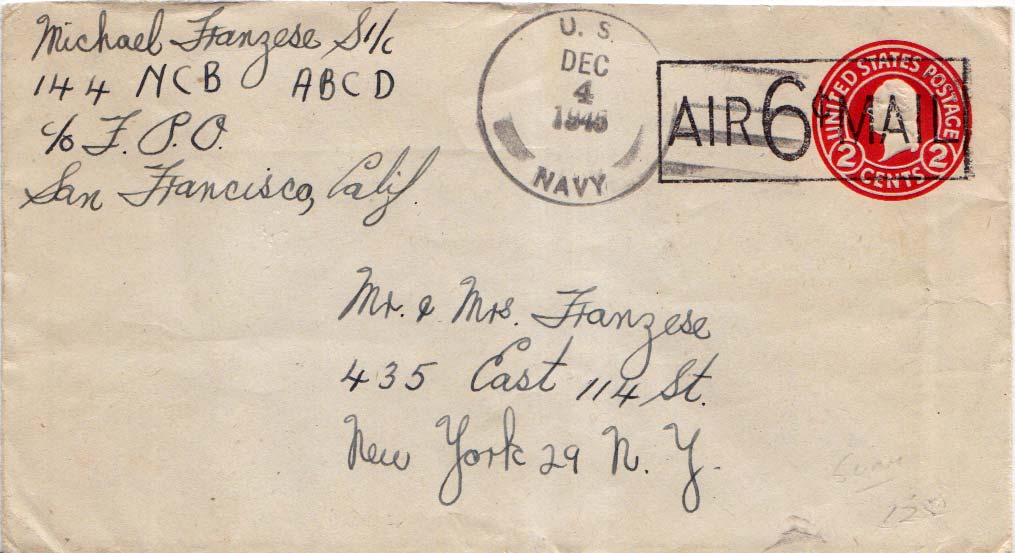 Michael Franzese S1/c
144 NCB ABCD
c/o F. P. O.
San Francisco, Calif
U. S.
DEC
4
1945
NAVY
AIR 6¢ MAIL
UNITED STATES POSTAGE
2 CENTS 2
Mr. & Mrs. Franzese
435 East 114 St.
New York 29 N. Y.